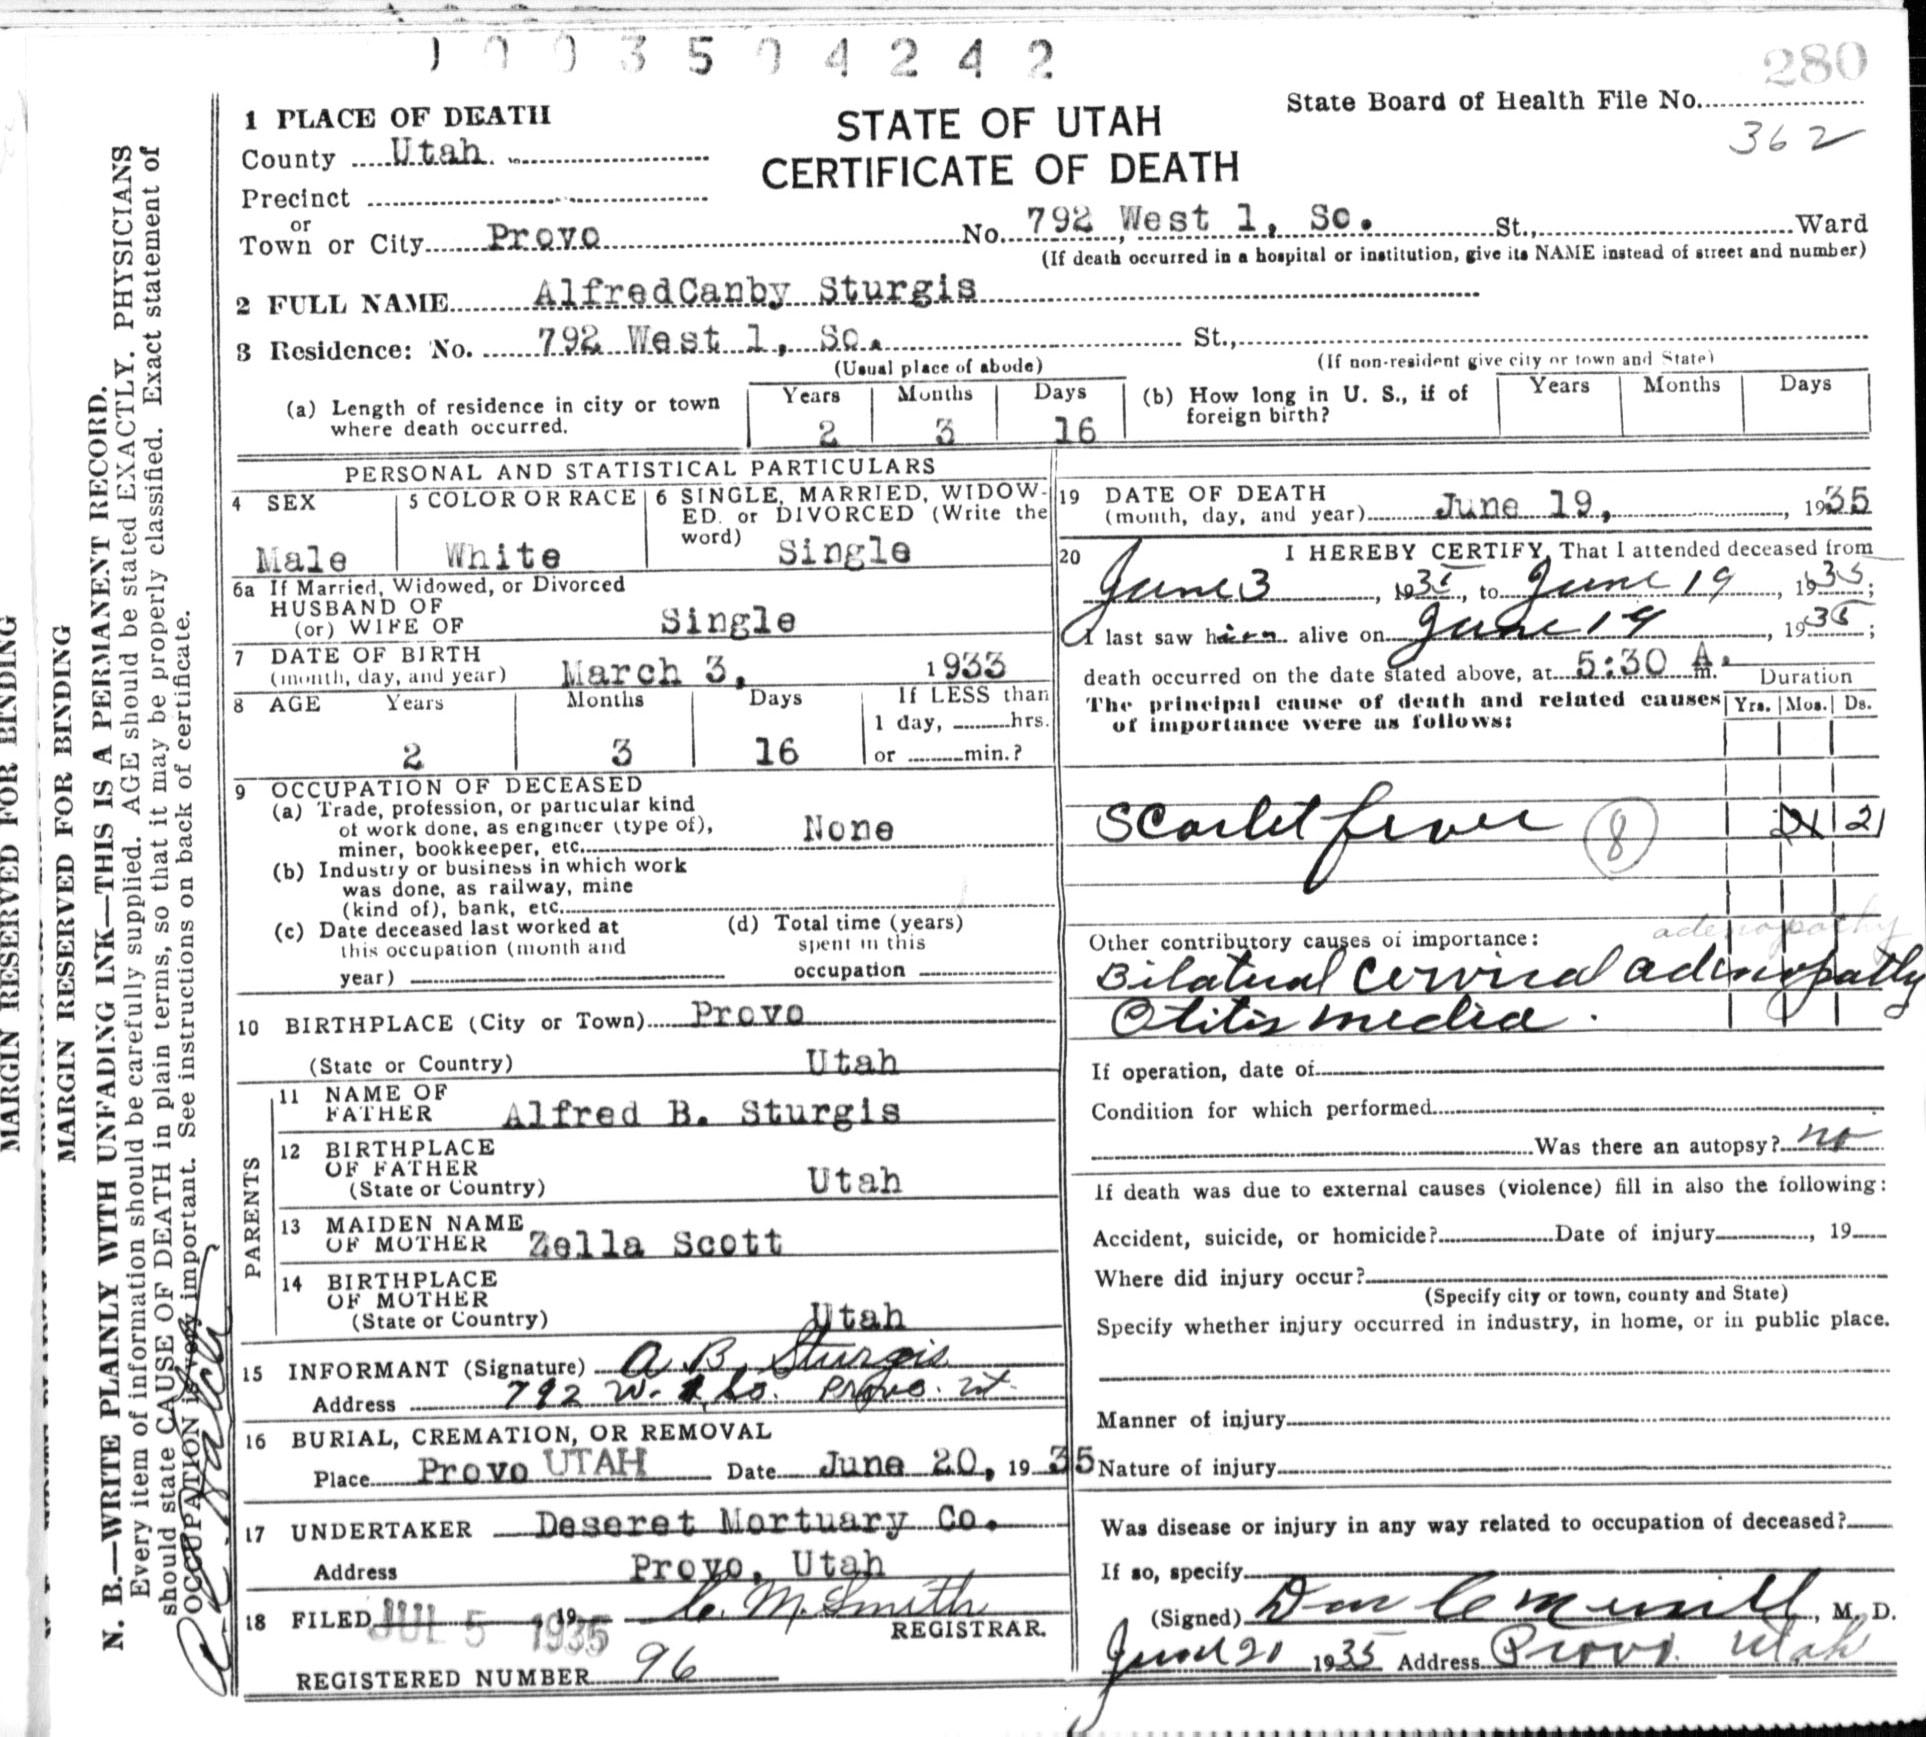 1 0 0 3 5 0 4 2 4 2
280
State Board of Health File No.
362
STATE OF UTAH
CERTIFICATE OF DEATH
1 PLACE OF DEATH
County Utah
Precinct
or
Town or City Provo No. 792 West 1, So. St., Ward
(If death occurred in a hospital or institution, give its NAME instead of street and number)
2 FULL NAME AlfredCanby Sturgis
3 Residence: No. 792 West 1, So. St.,
(Usual place of abode) (If non-resident give city or town and State)
(a) Length of residence in city or town where death occurred. Years 2 Months 3 Days 16
(b) How long in U. S., if of foreign birth? Years Months Days
PERSONAL AND STATISTICAL PARTICULARS
4 SEX
Male
5 COLOR OR RACE
White
6 SINGLE, MARRIED, WIDOW-
ED, or DIVORCED (Write the
word) Single
6a If Married, Widowed, or Divorced
HUSBAND OF
(or) WIFE OF Single
7 DATE OF BIRTH
(month, day, and year) March 3, 1933
8 AGE Years Months Days If LESS than
1 day, hrs.
2 3 16 or min.?
9 OCCUPATION OF DECEASED
(a) Trade, profession, or particular kind
of work done, as engineer (type of), None
miner, bookkeeper, etc.
(b) Industry or business in which work
was done, as railway, mine
(kind of), bank, etc.
(c) Date deceased last worked at
this occupation (month and
year)
(d) Total time (years)
spent in this
occupation
10 BIRTHPLACE (City or Town) Provo
(State or Country) Utah
PARENTS
11 NAME OF
FATHER Alfred B. Sturgis
12 BIRTHPLACE
OF FATHER
(State or Country) Utah
13 MAIDEN NAME
OF MOTHER Zella Scott
14 BIRTHPLACE
OF MOTHER
(State or Country) Utah
15 INFORMANT (Signature) A B Sturgis
Address 792 W. 1 So. Provo. Ut.
16 BURIAL, CREMATION, OR REMOVAL
Place Provo UTAH Date June 20, 19 35
17 UNDERTAKER Deseret Mortuary Co.
Address Provo, Utah
18 FILED JUL 5 1935 19 C. M. Smith
REGISTRAR.
REGISTERED NUMBER 96
19 DATE OF DEATH
(month, day, and year) June 19, 1935
20 I HEREBY CERTIFY, That I attended deceased from
June 3, 1935, to June 19, 1935;
I last saw him alive on June 19, 1935;
death occurred on the date stated above, at 5:30 A. m.
The principal cause of death and related causes
of importance were as follows:
Duration
Yrs. Mos. Ds.
Scarlet fever 8 21 21
adenopathy
Other contributory causes of importance:
Bilateral cervical adenopathy
Otitis media.
If operation, date of
Condition for which performed
Was there an autopsy? no
If death was due to external causes (violence) fill in also the following:
Accident, suicide, or homicide? Date of injury , 19
Where did injury occur?
(Specify city or town, county and State)
Specify whether injury occurred in industry, in home, or in public place.
Manner of injury
Nature of injury
Was disease or injury in any way related to occupation of deceased?
If so, specify
(Signed) Don C Merrill, M. D.
June 21 1935 Address Provo. Utah
MARGIN RESERVED FOR BINDING
MARGIN RESERVED FOR BINDING
N. B.—WRITE PLAINLY WITH UNFADING INK—THIS IS A PERMANENT RECORD.
Every item of information should be carefully supplied. AGE should be stated EXACTLY. PHYSICIANS
should state CAUSE OF DEATH in plain terms, so that it may be properly classified. Exact statement of
OCCUPATION is very important. See instructions on back of certificate.